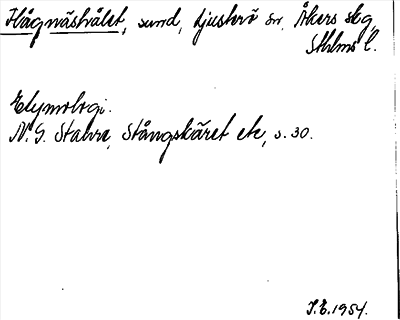 Hågnäshålet, sund, Ljusterö sn, Åkers skg,
Sthlms l.
Etymologi.
N. G. Stahre, Stångskäret etc, s. 30.
I.E. 1954.